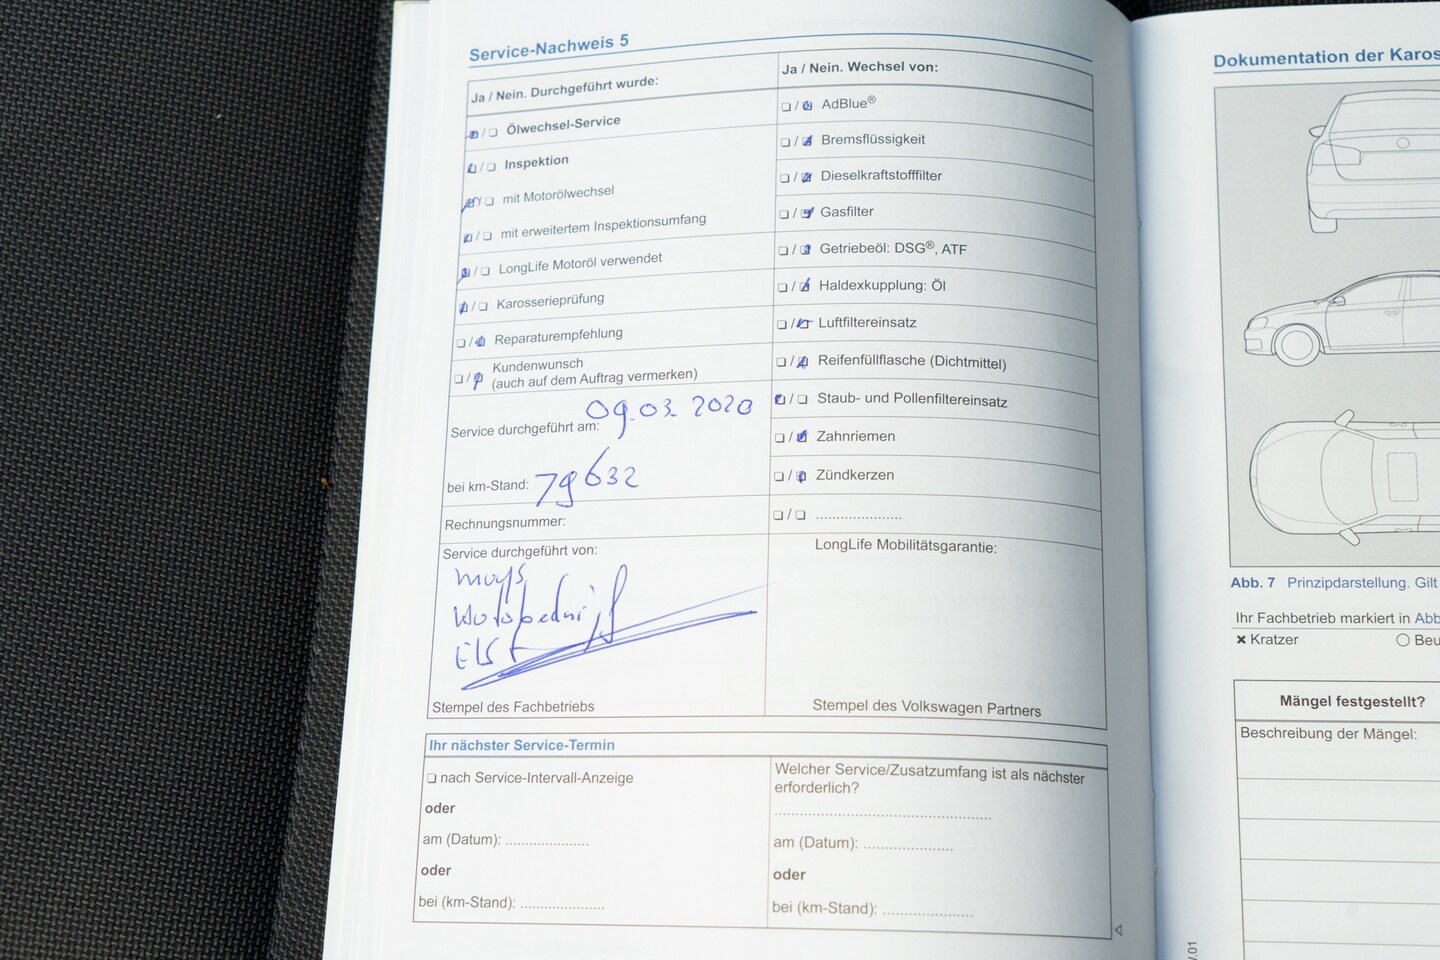 Service-Nachweis 5
Ja / Nein. Durchgeführt wurde:
Ölwechsel-Service
Inspektion
mit Motorölwechsel
mit erweitertem Inspektionsumfang
LongLife Motoröl verwendet
Karosserieprüfung
Reparaturempfehlung
Kundenwunsch
(auch auf dem Auftrag vermerken)
Service durchgeführt am: 09.03.2020
bei km-Stand: 79632
Rechnungsnummer:
Service durchgeführt von:
Elst
Stempel des Fachbetriebs
Ja / Nein. Wechsel von:
AdBlue®
Bremsflüssigkeit
Dieselkraftstofffilter
Gasfilter
Getriebeöl: DSG®, ATF
Haldexkupplung: Öl
Luftfiltereinsatz
Reifenfüllflasche (Dichtmittel)
Staub- und Pollenfiltereinsatz
Zahnriemen
Zündkerzen
LongLife Mobilitätsgarantie:
Stempel des Volkswagen Partners
Ihr nächster Service-Termin
nach Service-Intervall-Anzeige
oder
am (Datum):
oder
bei (km-Stand):
Welcher Service/Zusatzumfang ist als nächster
erforderlich?
am (Datum):
oder
bei (km-Stand):
Dokumentation der Karos
Abb. 7 Prinzipdarstellung. Gilt
Ihr Fachbetrieb markiert in Abb
Kratzer Beu
Mängel festgestellt?
Beschreibung der Mängel: